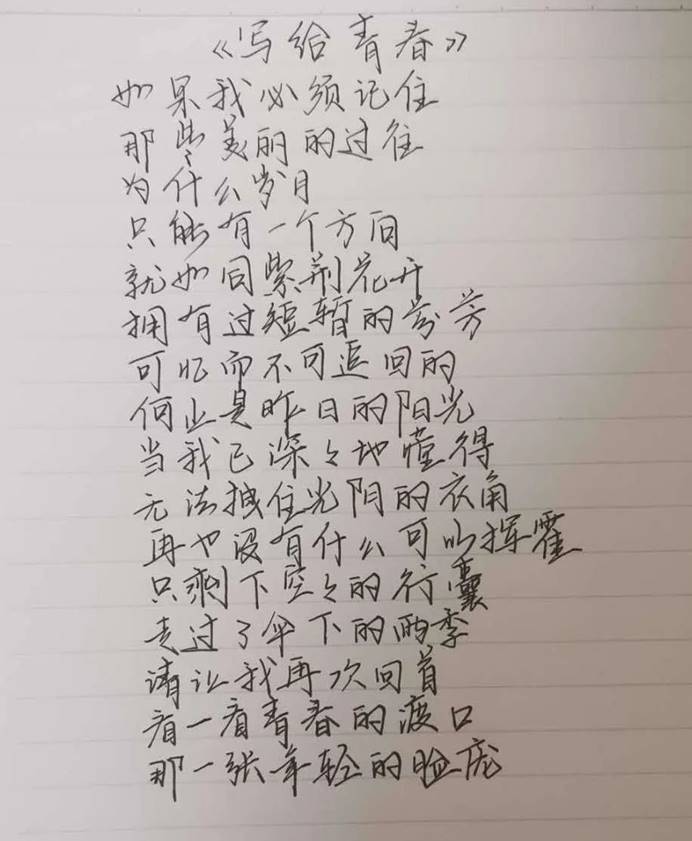 《写给青春》
如果我必须记住
那些美丽的过往
为什么岁月
只能有一个方向
就如同紫荆花开
拥有过短暂的芬芳
可忆而不可追回的
何止是昨日的阳光
当我已深々地懂得
无法拽住光阴的衣角
再也没有什么可以挥霍
只剩下空々的行囊
走过了伞下的雨季
请让我再次回首
看一看青春的渡口
那一张年轻的脸庞